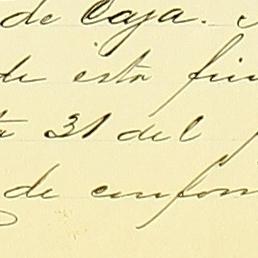 de Caja.
de esta fin
ta 31 del
de confor